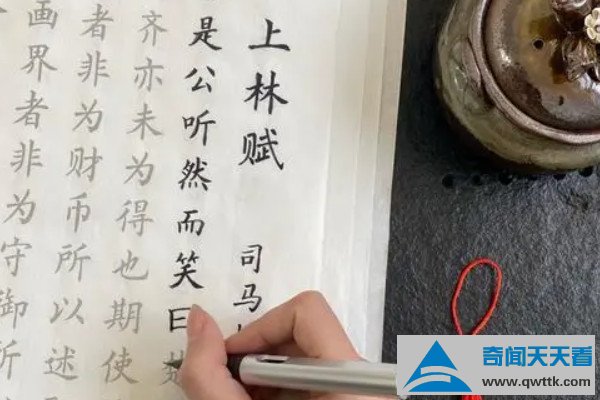 上林赋
司马
是公听然而笑曰楚
齐亦未为得也期使
者非为财币所以述
画界者非为守御所
奇闻天天看
www.qwttk.com